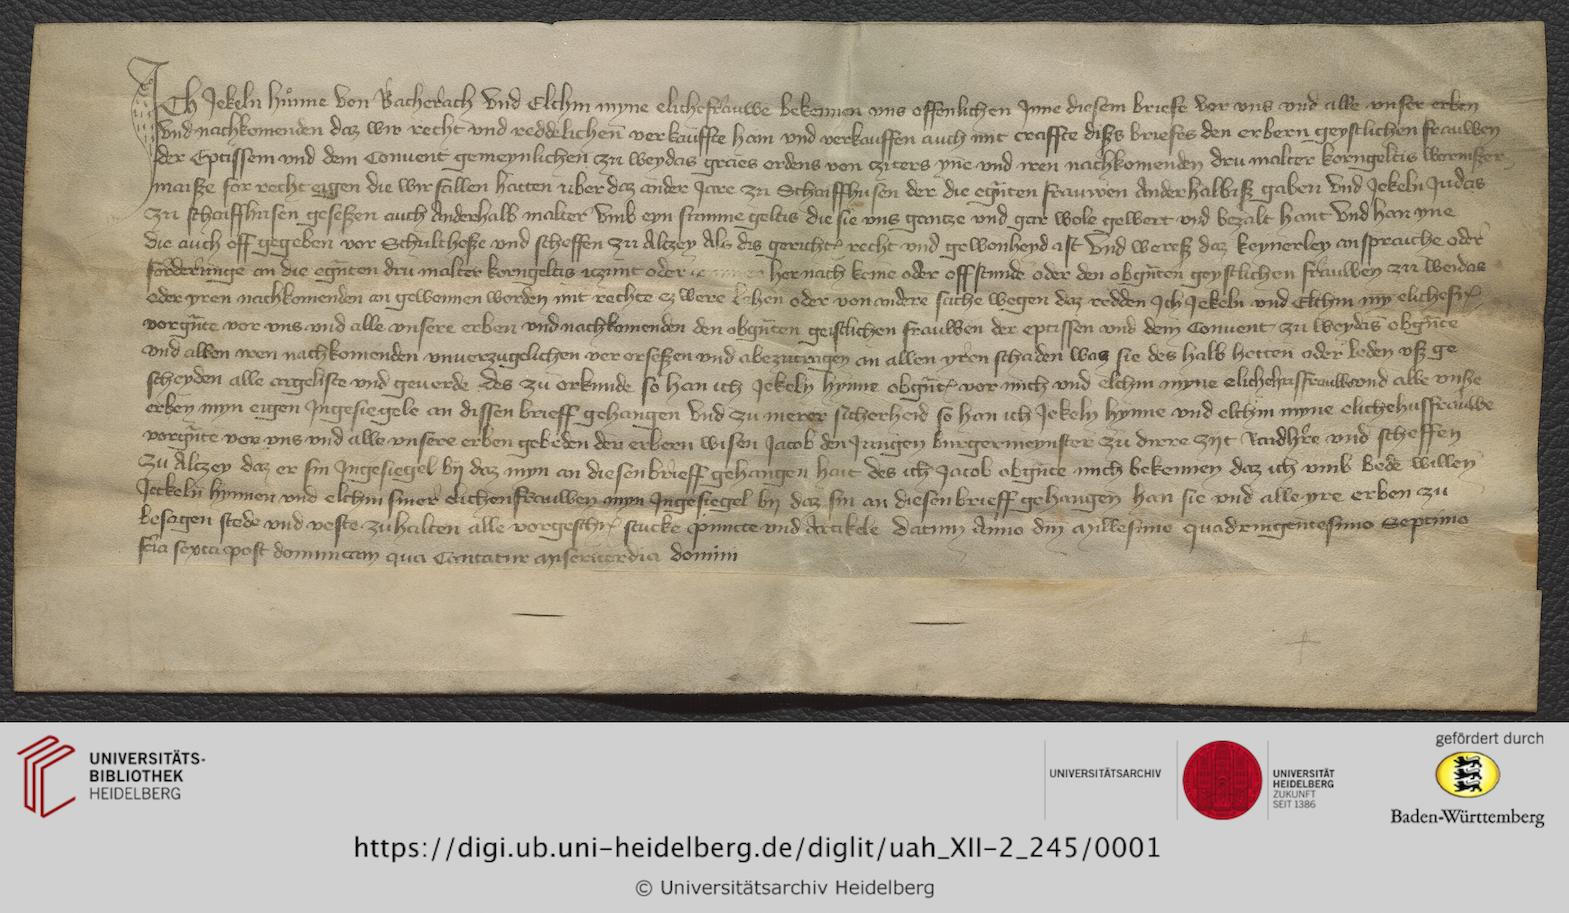 Ich Jekeln hünne von Bacherach vnd Elchin myne elichefrauwe bekennen vns offenlichen Inne diesem briefe vor vns vnd alle vnser erben
vnd nachkomenden daz wir recht vnd reddelichen verkauffte han vnd verkauffen auch mit craffte dißs briefes den erbern geystlichen frauwen
der Eptissem vnd dem Convent gemeynlichen zu weydas graes ordens von zyters yne vnd iren nachkomenden dru malter korngeltis wormßer
maiße for recht eigen die wir fallen hatten uber daz ander Jare zu Schaiffhusen der die egnten frauwen anderhalbiß gaben vnd Jekeln Judas
zu schaiffhusen geseßen auch anderhalb malter vmb eyn summe geltis die sie vns gantze vnd gar wole gewert vnd bezalt hant vnd han yne
die auch off gegeben vor Schultheße vnd scheffen zu Altzey Als dis gericht recht vnd gewonheyd ist vnd wereß daz keynerley ansprauche oder
forderunge an die egnten dru malter korngeltis yzunt oder her nach keine oder offstunde oder den obgnten geystlichen frauwen zu weidas
oder yren nachkomenden an gewonnen worden mit rechte ez were lehen oder von andere sache wegen daz redden Ich Jekeln vnd Elchin myn elichefr
vorgnte vor vns vnd alle vnsere erben vnd nachkomenden den obgnten geistlichen frauwen der eptissen vnd dem Convent zu weydas obgnte
vnd allen iren nachkomenden vnuerzugelichen ver ersetzen vnd abezutragen an allen yren schaden was sie des halb hetten oder leden vß ge
scheyden alle argeliste vnd geuerde des zu orkunde so han ich Jekeln hynne obgnt vor mich vnd elchin myne elichehusfrauwe vnd alle vnße
erben myn eigen Ingesiegele an dissen brieff gehangen vnd zu merer sicherheid so han ich Jekeln hynne vnd elchin myne elichehusfrauwe
vorgnte vor vns vnd alle vnsere erben gebeden den erbern wisen Jacob den Jungen burgermeynster zu dirre zijt vnd scheffen
zu Altzey daz er sin Ingesiegel bij daz myn an diesen brieff gehangen hait des ich Jacob obgnte mich bekennen daz ich vmb bede willen
Jeckeln hynnen vnd elchin siner elichen frauwen myn Ingesiegel bij daz sin an diesen brieff gehangen han sie vnd alle yre erben zu
besagen stede vnd veste zu halten alle vorgeschr stucke puncte vnd Artikele datum Anno dni millesimo quadringentesimo Septimo
feria sexta post dominicam qua Cantatur misericordia domini
UNIVERSITÄTS-
BIBLIOTHEK
HEIDELBERG
UNIVERSITÄTSARCHIV
UNIVERSITÄT
HEIDELBERG
ZUKUNFT
SEIT 1386
gefördert durch
Baden-Württemberg
https://digi.ub.uni-heidelberg.de/diglit/uah_XII-2_245/0001
© Universitätsarchiv Heidelberg